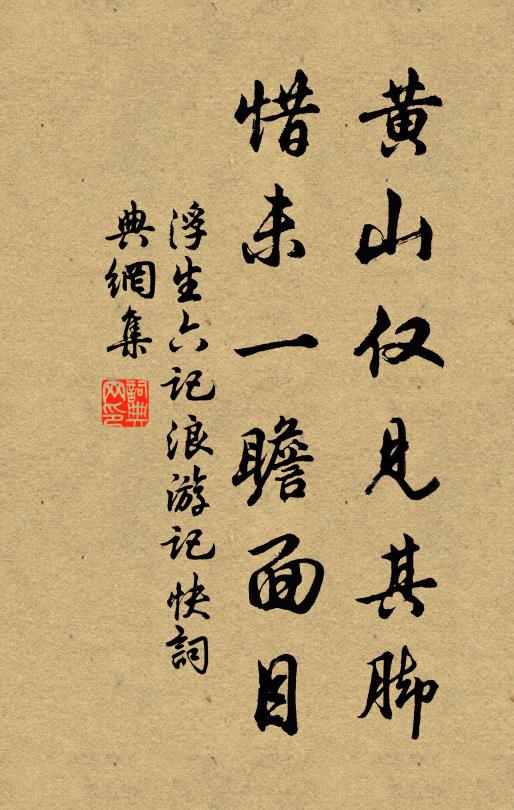 黄山仅见其脚
惜未一瞻面目
浮生六记浪游记快詞
典網集
詞典
网印